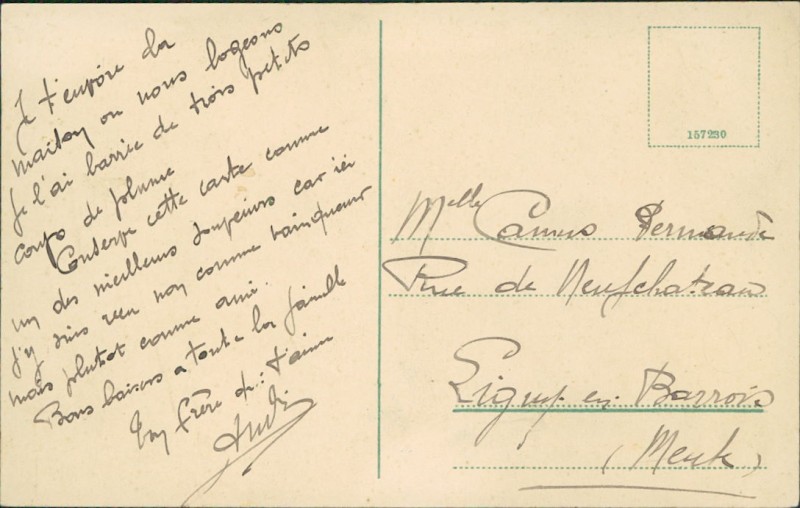 Je t'envoie la
maison ou nous logeons
je l'ai barrée de trois petits
coups de plume
Conserve cette carte comme
un des meilleurs souvenirs car ici
j'y suis reçu non comme vainqueur
mais plutot comme ami.
Bons baisers a toute la famille
Ton frère qui t'aime
André
157230
Melle Camus Fernande
Rue de Neufchateau
Ligny en Barrois
(Meuse)